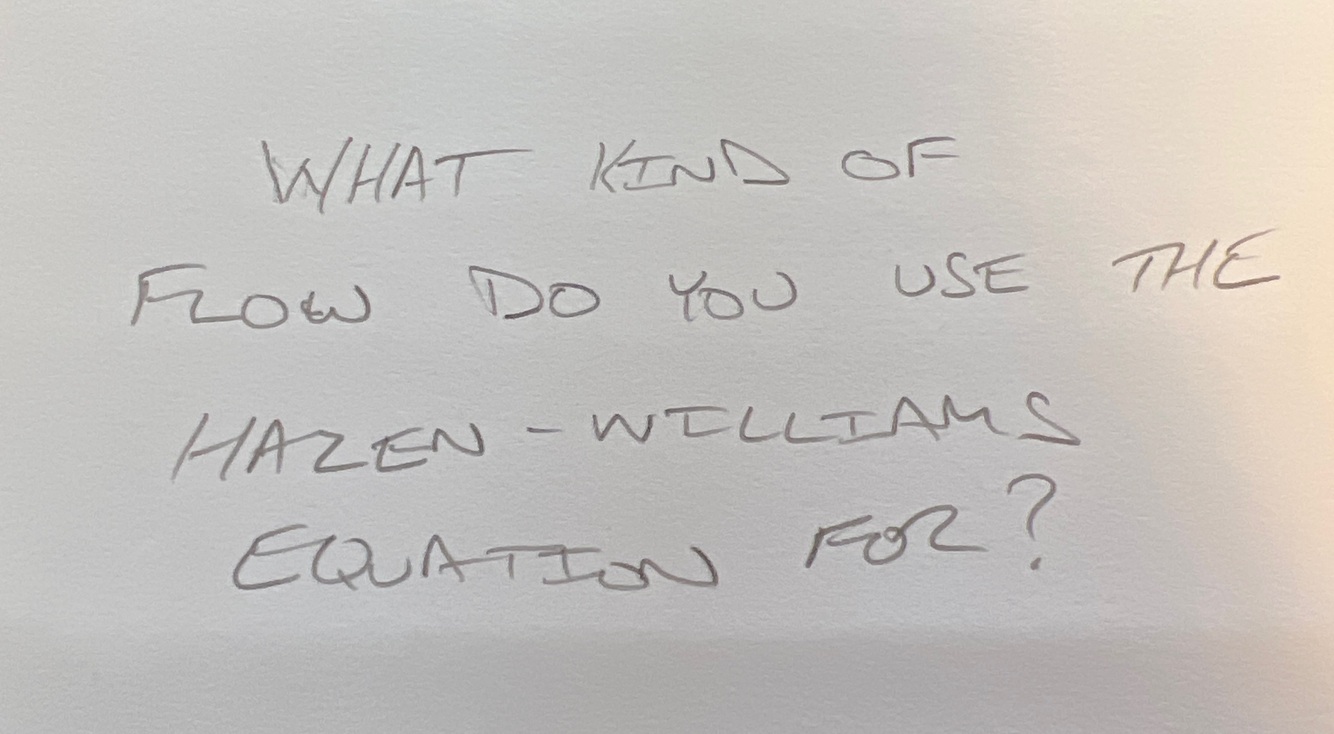 WHAT KIND OF
FLOW DO YOU USE THE
HAZEN-WILLIAMS
EQUATION FOR?